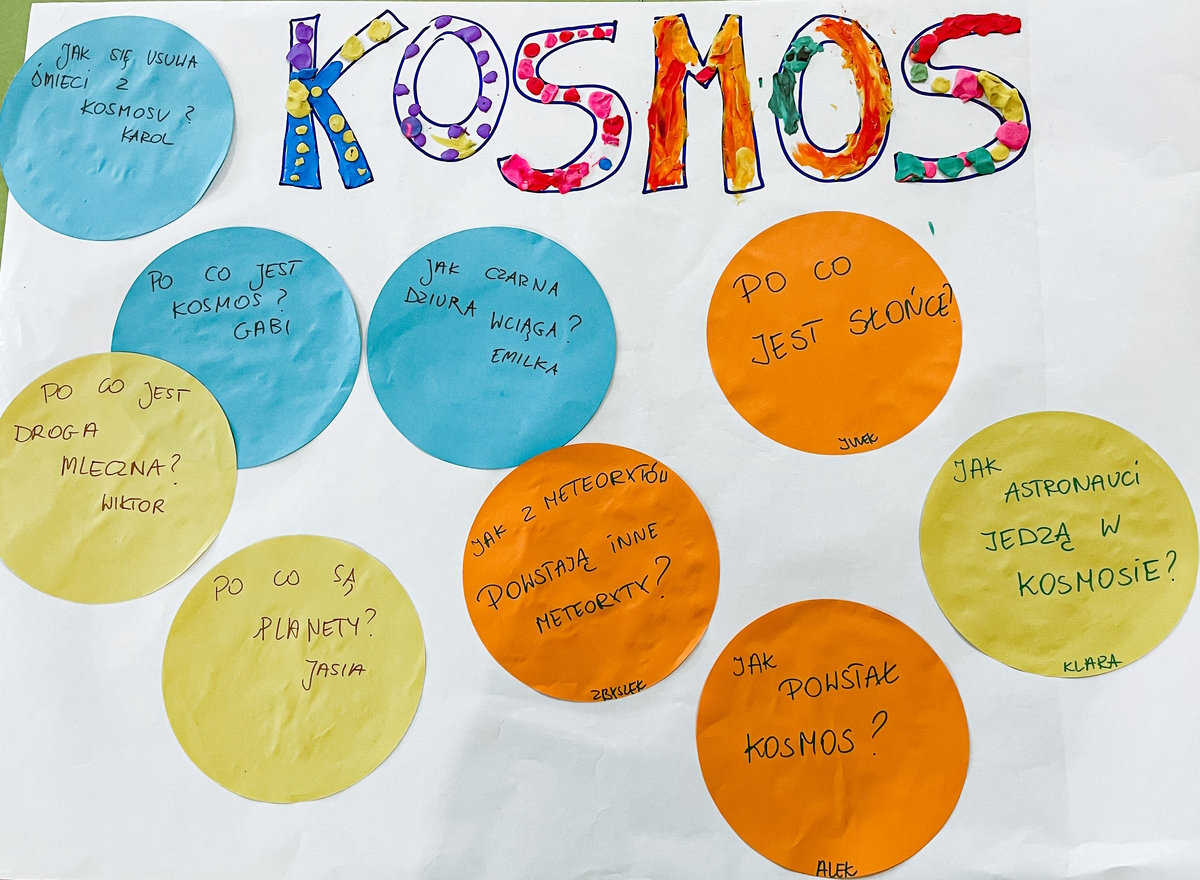 KOSMOS
JAK SIĘ USUWA
ŚMIECI Z
KOSMOSU?
KAROL
PO CO JEST
KOSMOS?
GABI
JAK CZARNA
DZIURA WCIĄGA?
EMILKA
PO CO
JEST SŁOŃCE?
PO CO JEST
DROGA
MLECZNA?
WIKTOR
JAK Z METEORYTÓW
POWSTAJĄ INNE
METEORYTY?
ZBYSZEK
JAK
ASTRONAUCI
JEDZĄ W
KOSMOSIE?
KLARA
PO CO SĄ
PLANETY?
JASIA
JAK
POWSTAŁ
KOSMOS?
ALEK